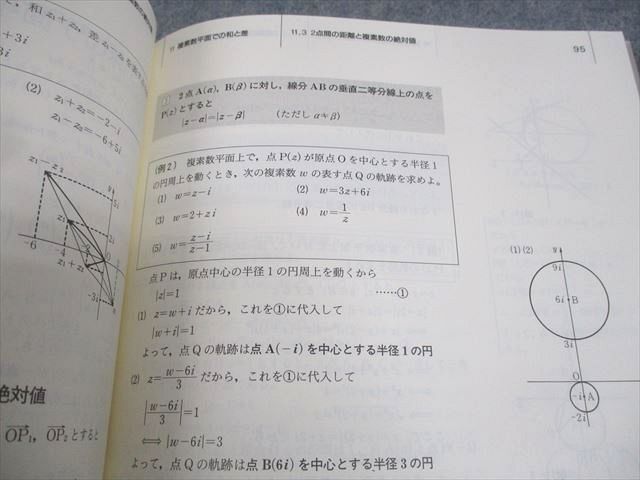 和 z₁+z₂, 差 z₁-z₂
+3i
3i
(2) z₁+z₂=-2-i
z₁-z₂=-6+5i
z₁-z₂
y
5i
2i
-6
-4
O
z₁+z₂
-3i
絶対値
OP₁, OP₂ とすると
11 複素数平面での和と差
11.3 2点間の距離と複素数の絶対値
95
2点 A(α), B(β) に対し, 線分 AB の垂直二等分線上の点を
P(z) とすると
|z-α|=|z-β| (ただし α≠β)
(例2) 複素数平面上で, 点 P(z) が原点 O を中心とする半径 1
の円周上を動くとき, 次の複素数 w の表す点 Q の軌跡を求めよ。
(1) w=z-i (2) w=3z+6i
(3) w=2+zi (4) w=1/z
(5) w=(z-i)/(z-1)
点 P は, 原点中心の半径 1 の円周上を動くから
|z|=1 ……①
(1) z=w+i だから, これを①に代入して
|w+i|=1
よって, 点 Q の軌跡は点 A(-i) を中心とする半径 1 の円
(2) z=(w-6i)/3 だから, これを①に代入して
|(w-6i)/3|=1
⟺ |w-6i|=3
よって, 点 Q の軌跡は点 B(6i) を中心とする半径 3 の円
(1)(2)
y
9i
6i B
3i
O
-i A
-2i